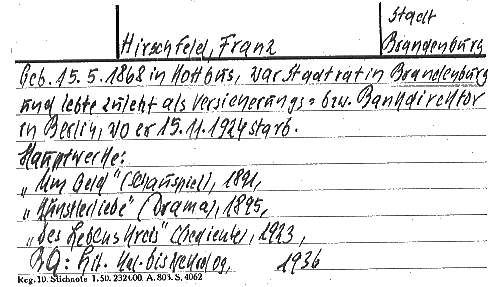 Stadt
Hirschfeld, Franz Brandenburg
Geb. 15. 5. 1868 in Kottbus, war Stadtrat in Brandenburg
und lebte zuletzt als Versicherungs= bzw. Bankdirektor
in Berlin, wo er 15. 11. 1924 starb.
Hauptwerke:
„Um Geld" (Schauspiel), 1891,
„Künstlerliebe" (Drama), 1895,
„Des Lebens Kreis" (Gedichte), 1923,
Lit. Kal. 1936
Keg. 10. Stichnote 1. 50. 2324.00. A. 803. S. 4062